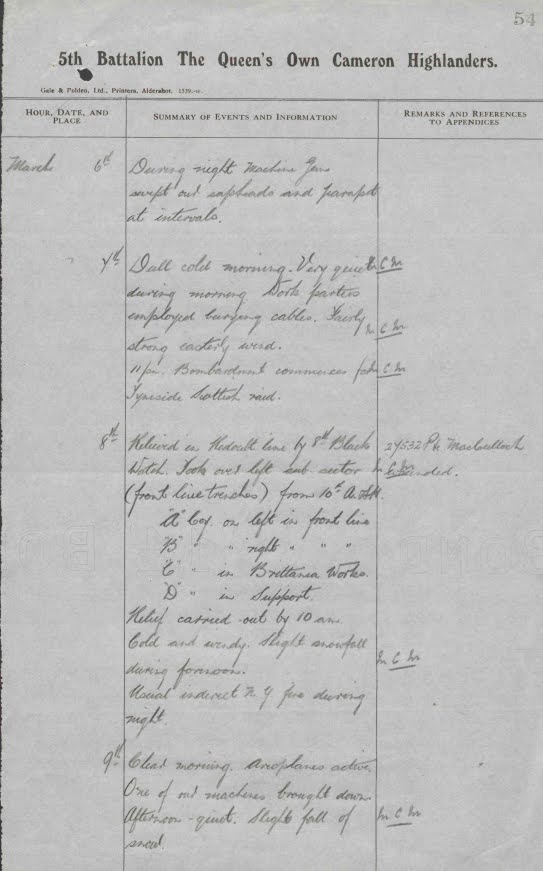 54
5th Battalion The Queen's Own Cameron Highlanders.
Gale & Polden, Ltd., Printers, Aldershot.
HOUR, DATE, AND PLACE
SUMMARY OF EVENTS AND INFORMATION
REMARKS AND REFERENCES TO APPENDICES
March 6th During night Machine Guns
swept our sapheads and parapet
at intervals.
7th Dull cold morning. Very quiet
during morning. Work parties
employed burying cables. Fairly
strong easterly wind.
11 pm. Bombardment commences for
Tyneside Scottish raid.
8th Relieved in Redoubt line by 8th Black 24532 Pte MacCulloch
Watch. Took over left sub. sector wounded.
(front line trenches) from 10th A.&S.H.
"A" Coy. on left in front line
"B" " " right " " "
"C" " in Brettania Works.
"D" " in Support.
Relief carried out by 10 am.
Cold and windy. Slight snowfall
during forenoon.
Usual indirect M. G fire during
night.
9th Clear morning. Aeroplanes active.
One of our machines brought down.
Afternoon - quiet. Slight fall of
snow.